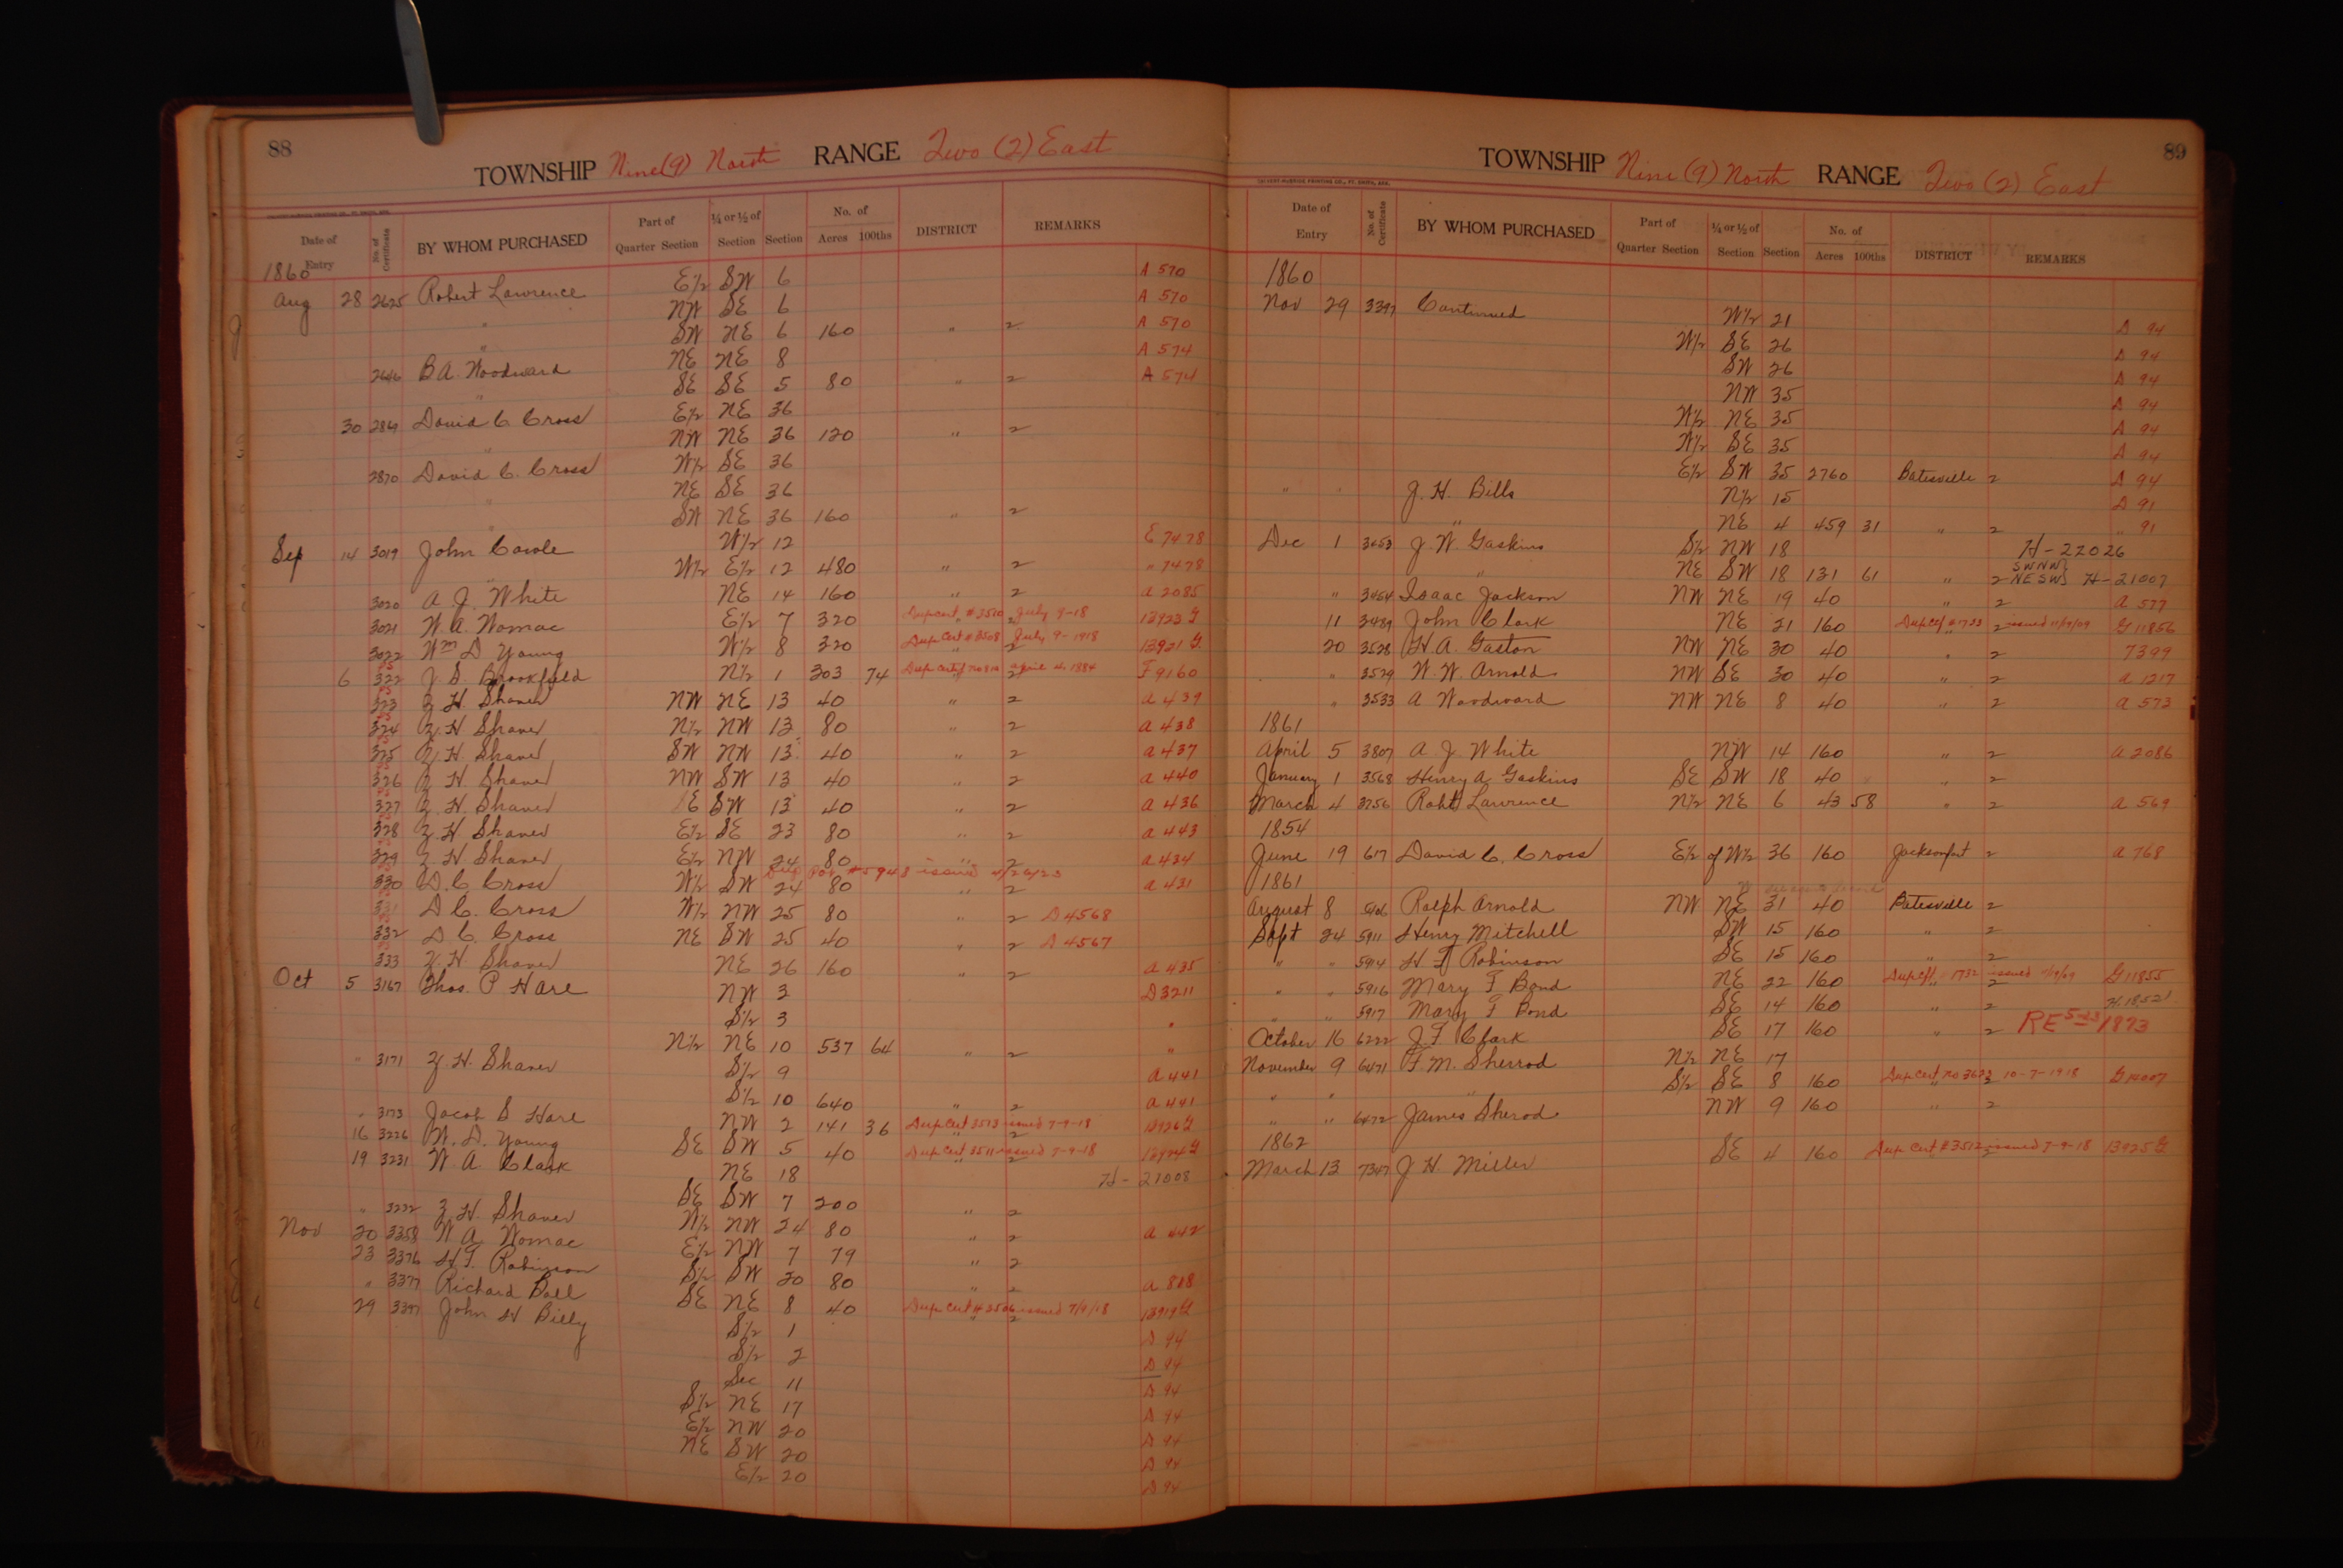 88
TOWNSHIP Nine (9) North RANGE Two (2) East
Date of Entry No. of Certificate BY WHOM PURCHASED Part of Quarter Section ¼ or ½ of Section Section No. of Acres 100ths DISTRICT REMARKS
1860
Aug 28 2625 Robert Lawrence E½ SW 6 A 570
" NW SE 6 A 570
" SW NE 6 160 " 2 A 570
2646 B A. Woodward NE NE 8 A 574
" SE SE 5 80 " 2 A 574
30 2869 David C Cross E½ NE 36
" NW NE 36 120 " 2
2870 David C. Cross W½ SE 36
" NE SE 36
" SW NE 36 160 " 2
Sep 14 3019 John Cowle W½ 12 E 7478
" W½ E½ 12 480 " 2 " 7478
3020 A. J. White NE 14 160 " 2 A 2085
3021 W. A. Womac E½ 7 320 Dup Cert # 3510 July 9-18 2 13923 G
3022 Wm D Young W½ 8 320 Dup Cert # 3508 July 9-1918 2 13921 G
6 322 J. S. Brookfield N½ 1 303 74 Dup Cert April 4, 1884 2 F 9160
323 Z H Shaver NW NE 13 40 " 2 A 439
324 Z. H Shaver N½ NW 13 80 " 2 A 438
325 Z. H. Shaver SW NW 13 40 " 2 A 437
326 Z H. Shaver NW SW 13 40 " 2 A 440
327 Z. H. Shaver SE SW 13 40 " 2 A 436
328 Z H Shaver E½ SE 23 80 " 2 A 443
329 Z H. Shaver E½ NW 24 80 " 2 A 434
Dup Pat # 5948 issued 4/20/23
330 D. C. Cross W½ SW 24 80 " 2 A 431
331 D C. Cross W½ NW 25 80 " 2 D 4568
332 D C. Cross NE SW 25 40 " 2 D 4567
333 Z. H. Shaver NE 26 160 " 2 A 435
Oct 5 3167 Thos. P Hare NW 3 D 3211
S½ 3 "
N½ NE 10 537 64 " 2 "
" 3171 Z H. Shaver S½ 9 A 441
S½ 10 640 " 2 A 441
" 3173 Jacob S Hare NW 2 141 36 Dup Cert 3513 issued 7-9-18 2 13926 G
16 3226 W. D. Young SE SW 5 40 Dup Cert 3511 issued 7-9-18 2 13924 G
19 3231 W. A. Clark NE 18 H - 21008
SE SW 7 200 " 2
" 3232 Z H Shaver N½ NW 24 80 " 2 A 442
Nov 20 3358 W A. Womac E½ NW 7 79 " 2
23 3376 H. F. Robinson S½ SW 20 80 " 2 A 818
" 3377 Richard Ball SE NE 8 40 Dup Cert # 3506 issued 7/9/18 2 13919 G
29 3397 John H Billy S½ 1 D 94
S½ 2 D 94
Sec 11 D 94
S½ NE 17 D 94
E½ NW 20 D 94
NE SW 20 D 94
E½ 20 D 94
89
TOWNSHIP Nine (9) North RANGE Two (2) East
Date of Entry No. of Certificate BY WHOM PURCHASED Part of Quarter Section ¼ or ½ of Section Section No. of Acres 100ths DISTRICT REMARKS
1860
Nov 29 3397 Continued W½ 21 D 94
W½ SE 26 D 94
SW 26 D 94
NW 35 D 94
W½ NE 35 D 94
W½ SE 35 D 94
E½ SW 35 2760 Batesville 2 D 94
" " J. H. Bills N½ 15 D 91
" NE 4 459 31 " 2 " 91
Dec 1 3453 J. W. Gaskins S½ NW 18 H - 22026
" NE SW 18 131 61 " 2 SWNW NESW H - 21007
" 3464 Isaac Jackson NW NE 19 40 " 2 A 577
11 3489 John Clark NE 21 160 Dup Cert 1733 2 issued 11/9/09 G 11856
20 3528 H. A. Gaston NW NE 30 40 " 2 7399
" 3529 W. W. Arnold NW SE 30 40 " 2 A 1217
" 3533 A Woodward NW NE 8 40 " 2 A 573
1861
April 5 3807 A. J. White NW 14 160 " 2 A 2086
January 1 3568 Henry A Gaskins SE SW 18 40 " 2
March 4 3756 Robt Lawrence N½ NE 6 43 58 " 2 A 569
1854
June 19 617 David C. Cross E½ of W½ 36 160 Jacksonport 2 A 768
1861
August 8 5406 Ralph Arnold NW NE 31 40 Batesville 2
Sept 24 5911 Henry Mitchell SW 15 160 " 2
" " 5914 H. F Robinson SE 15 160 " 2
" " 5916 Mary F Bond NE 22 160 Dup Cert 1732 issued 2 G 11855
" " 5917 Mary F Bond SE 14 160 " 2 H. 18521
October 16 6222 J. F Clark SE 17 160 " 2 RE 1873
November 9 6471 F. M. Sherrod N½ NE 17
" " " S½ SE 8 160 Dup Cert No 3623 10-7-1918 2 G 14007
" " 6472 James Sherod NW 9 160 " 2
1862
March 13 7347 J H. Miller SE 4 160 Dup Cert # 3512 issued 7-9-18 13925 G